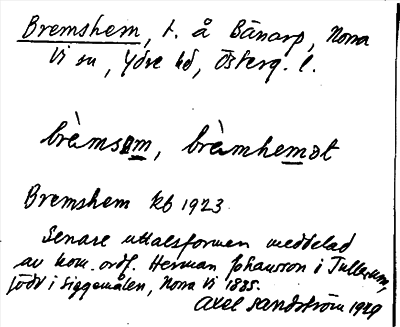 Bremshem, t. å Bänarp, Norra
Vi sn, Ydre hd, Österg. l.
brèmsəm, brèmhemət
Bremshem kb 1923
Senare uttalsformen meddelad
av kom. ordf. Herman Johansson i Tullerum,
född i Siggemålen, Norra Vi 1885.
Axel Sandström 1929